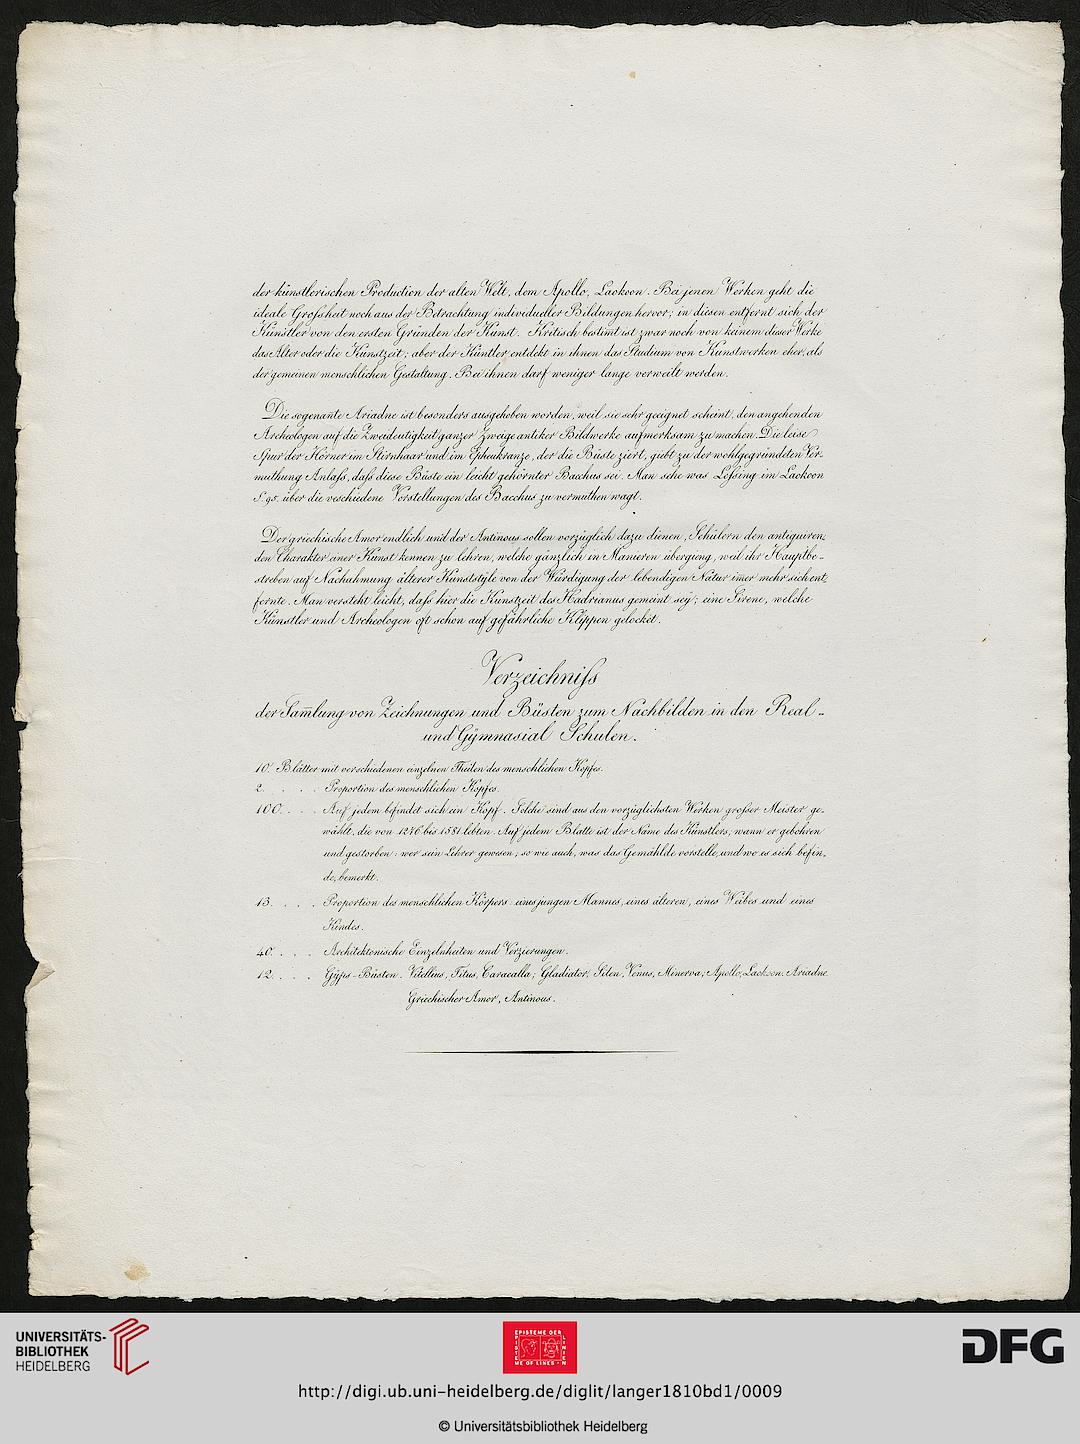 der künstlerischen Production der alten Welt, dem Apollo, Laokoon. Bei jenen Werken geht die
ideale Grofsheit noch aus der Betrachtung individueller Bildungen hervor; in diesen entfernt sich der
Künstler von den ersten Gründen der Kunst. Kritisch bestimt ist zwar noch von keinem dieser Werke
das Alter oder die Kunstzeit; aber der Küntler entdekt in ihnen das Studium von Kunstwerken eher, als
der gemeinen menschlichen Gestaltung. Bei ihnen darf weniger lange verweilt werden.
Die sogenan̄te Ariadne ist besonders ausgehoben worden, weil sie sehr geeignet scheint, den angehenden
Archeologen auf die Zweideutigkeit ganzer Zweige antiker Bildwerke aufmerksam zu machen. Die leise
Spur der Hörner im Stirnhaar und im Epheukranze, der die Büste ziert, giebt zu der wohlgegründeten Ver-
muthung Anlafs, dafs diese Büste ein leicht gehörnter Bacchus sei. Man sehe was Lefsing im Laokoon
S. 95. über die veschiedene Vorstellungen des Bacchus zu vermuthen wagt.
Der griechische Amor endlich und der Antinous sollen vorzüglich dazu dienen, Schülern den antiquiren-
den Charakter einer Kunst kennen zu lehren, welche gänzlich in Manieren überging, weil ihr Hauptbe-
streben auf Nachahmung älterer Kunststÿle von der Würdigung der lebendigen Natur im̄er mehr sich ent-
fernte. Man versteht leicht, dafs hier die Kunstzeit des Hadrianus gemeint seÿ; eine Sirene, welche
Künstler und Archeologen oft schon auf gefährliche Klippen gelocket.
Verzeichnifs
der Sam̄lung von Zeichnungen und Büsten zum Nachbilden in den Real-
und Gÿmnasial Schulen.
10. Blätter mit verschiedenen einzelnen Theilen des menschlichen Kopfes.
2. . . . . Proportion des menschlichen Kopfes.
100. . . . Auf jedem befindet sich ein Kopf. Solche sind aus den vorzüglichsten Werken grofser Meister ge-
wählt, die von 1276 bis 1581 lebten. Auf jedem Blatte ist der Name des Künstlers, wann er gebohren
und gestorben: wer sein Lehrer gewesen; so wie auch, was das Gemählde vorstelle, und wo es sich befin-
de, bemerkt.
13. . . . . Proportion des menschlichen Körpers eines jungen Mannes, eines älteren, eines Weibes und eines
Kindes.
40. . . . Architektonische Einzelnheiten und Verzierungen.
12. . . . Gÿps-Büsten. Vitellius, Titus, Caracalla, Gladiator, Silen, Venus, Minerva, Apollo, Laokoon, Ariadne
Griechischer Amor, Antinous.
UNIVERSITÄTS-
BIBLIOTHEK
HEIDELBERG
EPISTEME DER
LINIEN
EPISTE
ME OF LINES
DFG
http://digi.ub.uni-heidelberg.de/diglit/langer1810bd1/0009
© Universitätsbibliothek Heidelberg